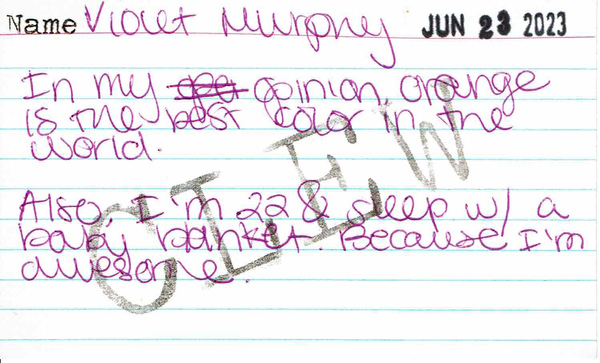 Name Violet Murphy JUN 23 2023
In my opinion, orange
is the best color in the
world.
Also, I'm 22 & sleep w/ a
baby blanket. Because I'm
awesome.
CLEW